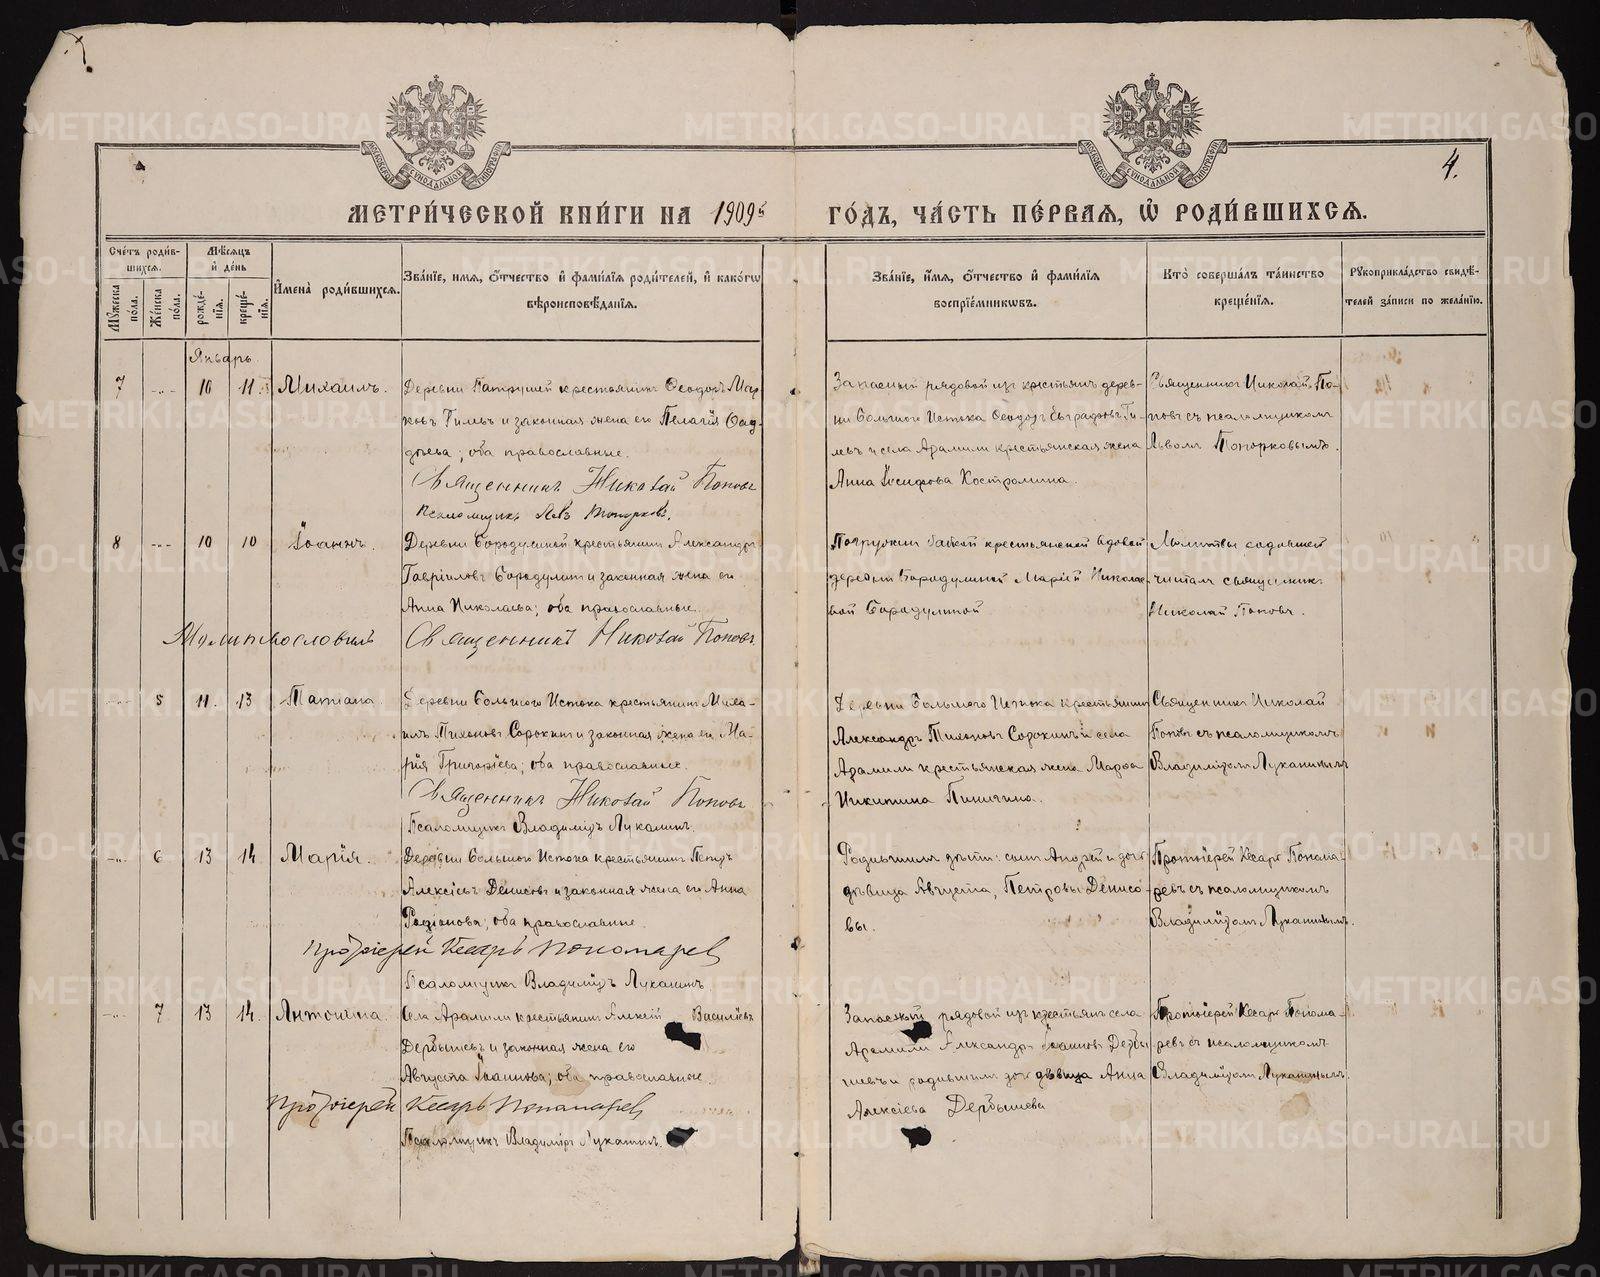 МЕТРИ́ЧЕСКОЙ КНИ́ГИ НА 1909й ГО́ДЪ, ЧА́СТЬ ПЕ́РВАЯ, Ѡ҆ РОДИ́ВШИХСЯ.
4.
МОСКОВСКОЙ СУНОДАЛЬНОЙ ТИПОГРАФІИ
МОСКОВСКОЙ СУНОДАЛЬНОЙ ТИПОГРАФІИ
Сче́тъ роди́в-
шихся.
Му́жеска по́ла.
Же́нска по́ла.
Мѣ́сяцъ
и҆ де́нь
рожде́-
нїя.
креще́-
нїя.
И҆мена̀ роди́вшихся.
Зва́нїе, имя, ѻ҆́тчество и҆ фами́лїя роди́телей, и҆ како́гѡ
вѣроисповѣ́данїя.
Зва́нїе, и҆́мя, ѻ҆́тчество и҆ фами́лїя
воспрїе́мникѡвъ.
Кто̀ соверша́лъ та́инство
креще́нїя.
Рꙋкоприкла́дство свидѣ́-
телей за́писи по жела́нїю.
Январь.
7 -„- 10 11. Михаилъ.
Деревни Патрушей крестьянинъ Ѳеодоръ Мар-
ковъ Гилевъ и законная жена его Пелагія Ѳад-
дѣева; оба православные.
Священникъ Николай Поповъ
Псаломщикъ Левъ Топорковъ.
Запасный рядовой изъ крестьянъ дерев-
ни Большого Истока Ѳеодоръ Евграфовъ Ги-
левъ и села Арамили крестьянская жена
Анна Іосифова Костромина.
Священникъ Николай По-
повъ съ псаломщикомъ
Львомъ Топорковымъ.
8 -„- 10 10 Іоаннъ.
Деревни Бородулиной крестьянинъ Александръ
Гавріиловъ Бородулинъ и законная жена его
Анна Николаева; оба православные.
Молитвословилъ Священникъ Николай Поповъ.
Погружен бабкой крестьянской вдовой
деревни Бородулиной Маріей Николае-
вой Бородулиной
Молитвы родившей
читалъ священникъ
Николай Поповъ.
-„- 5 11. 13 Татіана.
Деревни Большого Истока крестьянинъ Миха-
илъ Тихоновъ Сорокинъ и законная жена его Ма-
рія Григоріева; оба православные.
Священникъ Николай Поповъ
Псаломщикъ Владиміръ Луканинъ.
Деревни Большого Истока крестьянинъ
Александръ Тихоновъ Сорокинъ и села
Арамили крестьянская жена Марѳа
Никитина Пинигина.
Священникъ Николай
Поповъ съ псаломщикомъ
Владиміромъ Луканинымъ
-„- 6 13 14 Марія.
Деревни Большого Истока крестьянинъ Петръ
Алексіевъ Денисовъ и законная жена его Анна
Родіонова; оба православные.
Протоіерей Кесарь Пономаревъ
Псаломщикъ Владиміръ Луканинъ
Родившимъ дѣти: сынъ Андрей и дочь
дѣвица Августа, Петровы Денисо-
вы.
Протоіерей Кесарь Понома-
ревъ съ псаломщикомъ
Владиміромъ Луканинымъ.
-„- 7 13 14. Антонина.
Села Арамили крестьянинъ Алексій Василіевъ
Дербышевъ и законная жена его
Августа Іоаннова; оба православные.
Протоіерей Кесарь Пономаревъ
Псаломщикъ Владиміръ Луканинъ.
Запасный рядовой изъ крестьянъ села
Арамили Александръ Іоанновъ Дербы-
шевъ и родившимъ дочь дѣвица Анна
Алексіева Дербышева
Протоіерей Кесарь Понома-
ревъ съ псаломщикомъ
Владиміромъ Луканинымъ.
METRIKI.GASO-URAL.RU